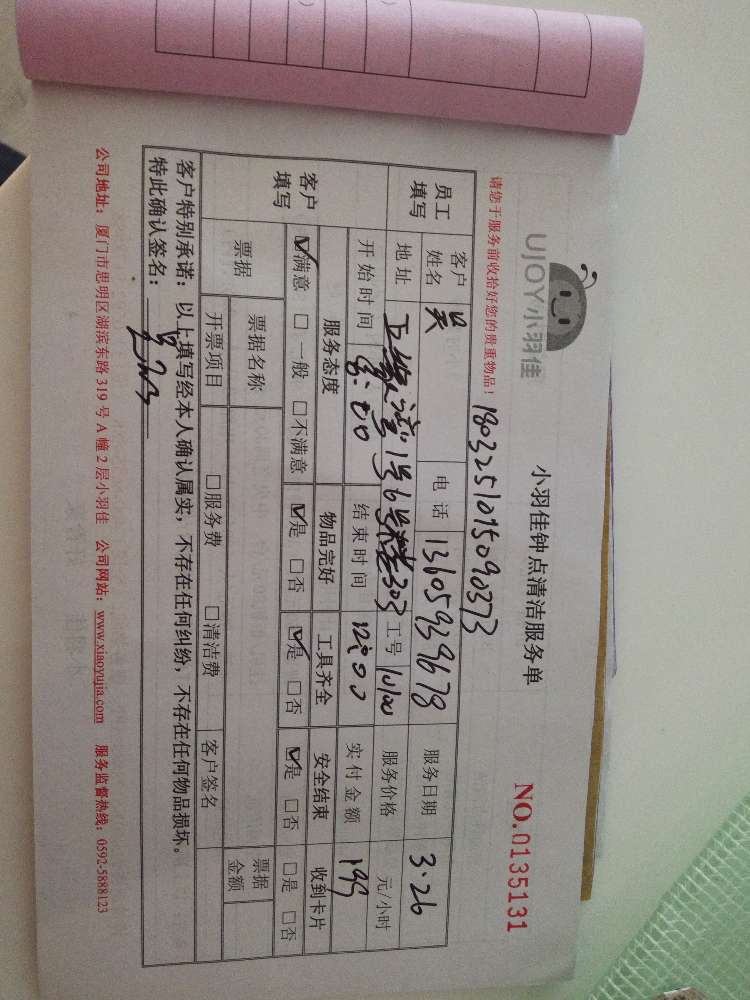 UJOY小羽佳
小羽佳钟点清洁服务单
NO.0135131
请您于服务前收拾好您的贵重物品!
1803251015090373
员工填写 客户姓名 吴 电话 13605939678 服务日期 3.26
地址 1号6号楼303 工号 服务价格 元/小时
开始时间 8:00 结束时间 12:00 实付金额 199
客户填写 服务态度 物品完好 工具齐全 安全结束 收到卡片
☑满意 □一般 □不满意 ☑是 □否 ☑是 □否 ☑是 □否 □是 □否
票据 票据名称 票据金额
开票项目 □服务费 □清洁费 客户签名
客户特别承诺:以上填写经本人确认属实,不存在任何纠纷,不存在任何物品损坏。
特此确认签名:
公司地址:厦门市思明区湖滨东路319号A幢2层小羽佳 公司网站:www.xiaoyujia.com 服务监督热线:0592-5888123